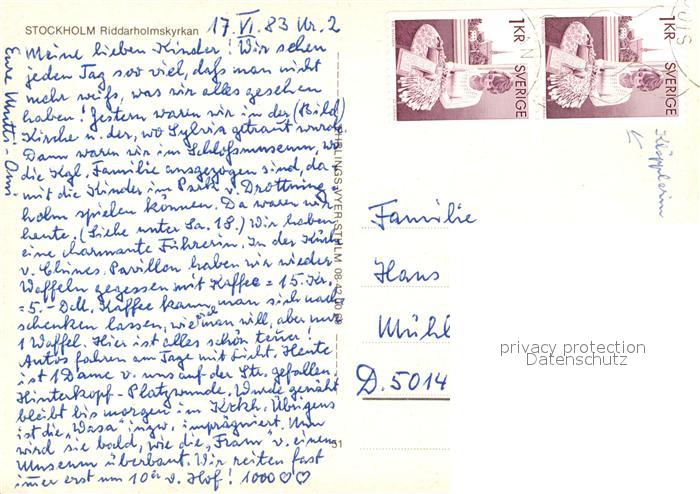 STOCKHOLM Riddarholmskyrkan
17. VI. 83 Nr. 2
Meine lieben Kinder! Wir sehen
jeden Tag soo viel, daß man nicht
mehr weiß, was wir alles gesehen
haben! Gestern waren wir in der (Bild)
Kirche u. der, wo Sylvia getraut wurde
Dann waren wir im Schloßmuseum, wo
die Kgl. Familie ausgezogen sind, da-
mit die Kinder im Park v. Drottning-
holm spielen können. Da waren wir
heute. (Siehe unter Sa. 18.) Wir haben
eine charmante Führerin. In der Küche
v. Chines. Pavillon haben wir wieder
Waffeln gegessen mit Kaffee = 15. Kr.
= 5.- DM. Kaffee kann man sich nach
schenken lassen, wie man will, aber nur
1 Waffel. Hier ist alles schön teuer!
Autos fahren am Tage mit Licht. Heute
ist 1 Dame v. uns auf der Str. gefallen
Hinterkopf-Platzwunde. Wurde genäht
bleibt bis morgen im Krkh. Übrigens
ist die "Wasa" inzw. imprägniert. Nun
wird sie bald, wie die "Fram" v. einem
Museum überbaut. Wir reiten fast
immer erst um 10 er v. Hof! 1000 ♡♡
Eure Mutti-Omi
VYER-STHLM 08-42
51
1KR SVERIGE
1KR SVERIGE
Klöpplerin
Familie
Hans
Mühl
D. 5014
privacy protection
Datenschutz